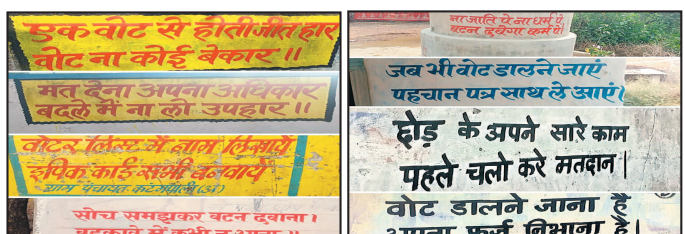 एक वोट से होती जीत हार
वोट ना कोई बेकार ॥
मत देना अपना अधिकार
बदले में ना लो उपहार ॥
वोटर लिस्ट में नाम लिखाये
इपिक कार्ड सभी बनवाये
ग्राम पंचायत
सोच समझकर बटन दबाना ।
बहकावे में कभी न आना ॥
ना जाति पे ना धर्म पे,
बटन दबेगा कर्म पे।
जब भी वोट डालने जाएं
पहचान पत्र साथ ले जाएं।
छोड़ के अपने सारे काम
पहले चलो करे मतदान |
वोट डालने जाना है
अपना फर्ज निभाना है।